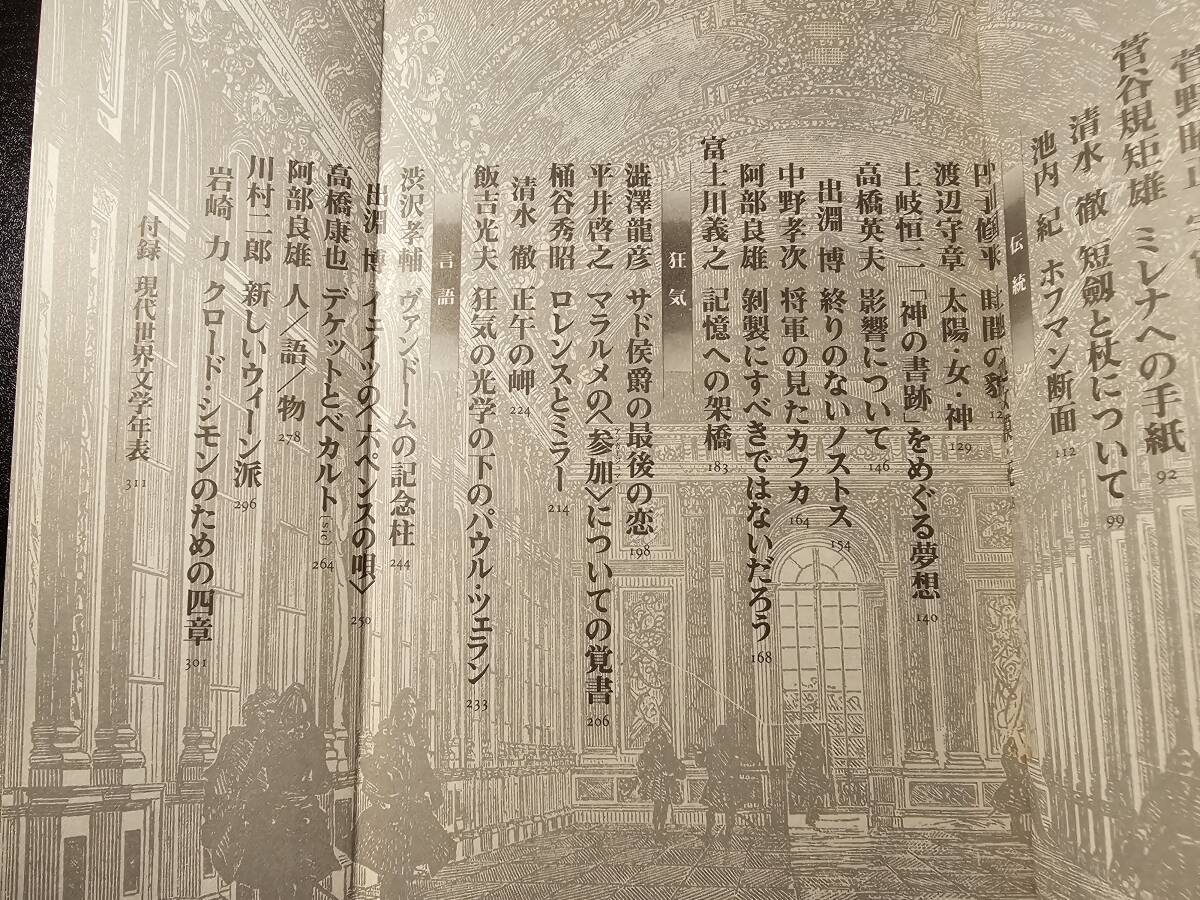 菅谷規矩雄 ミレナへの手紙 92
清水 徹 短剣と杖について 99
池内 紀 ホフマン断面 112
伝統
修平 時間の貌 12
渡辺守章 太陽・女・神 129
土岐恒二 「神の書跡」をめぐる夢想 140
高橋英夫 影響について 146
出淵 博 終りのないノストス 154
中野孝次 将軍の見たカフカ 164
阿部良雄 剝製にすべきではないだろう 168
富士川義之 記憶への架橋 183
狂気
澁澤龍彦 サド侯爵の最後の恋 198
平井啓之 マラルメの〈参加〉についての覚書 206
桶谷秀昭 ロレンスとミラー 214
清水 徹 正午の岬 224
飯吉光夫 狂気の光学の下のパウル・ツェラン 233
言語
渋沢孝輔 ヴァンドームの記念柱 244
出淵 博 イエイツの〈六ペンスの唄〉 250
高橋康也 デケットとベカルト[sic] 264
阿部良雄 人/語/物 278
川村二郎 新しいウィーン派 296
岩崎 力 クロード・シモンのための四章 301
付録 現代世界文学年表 311